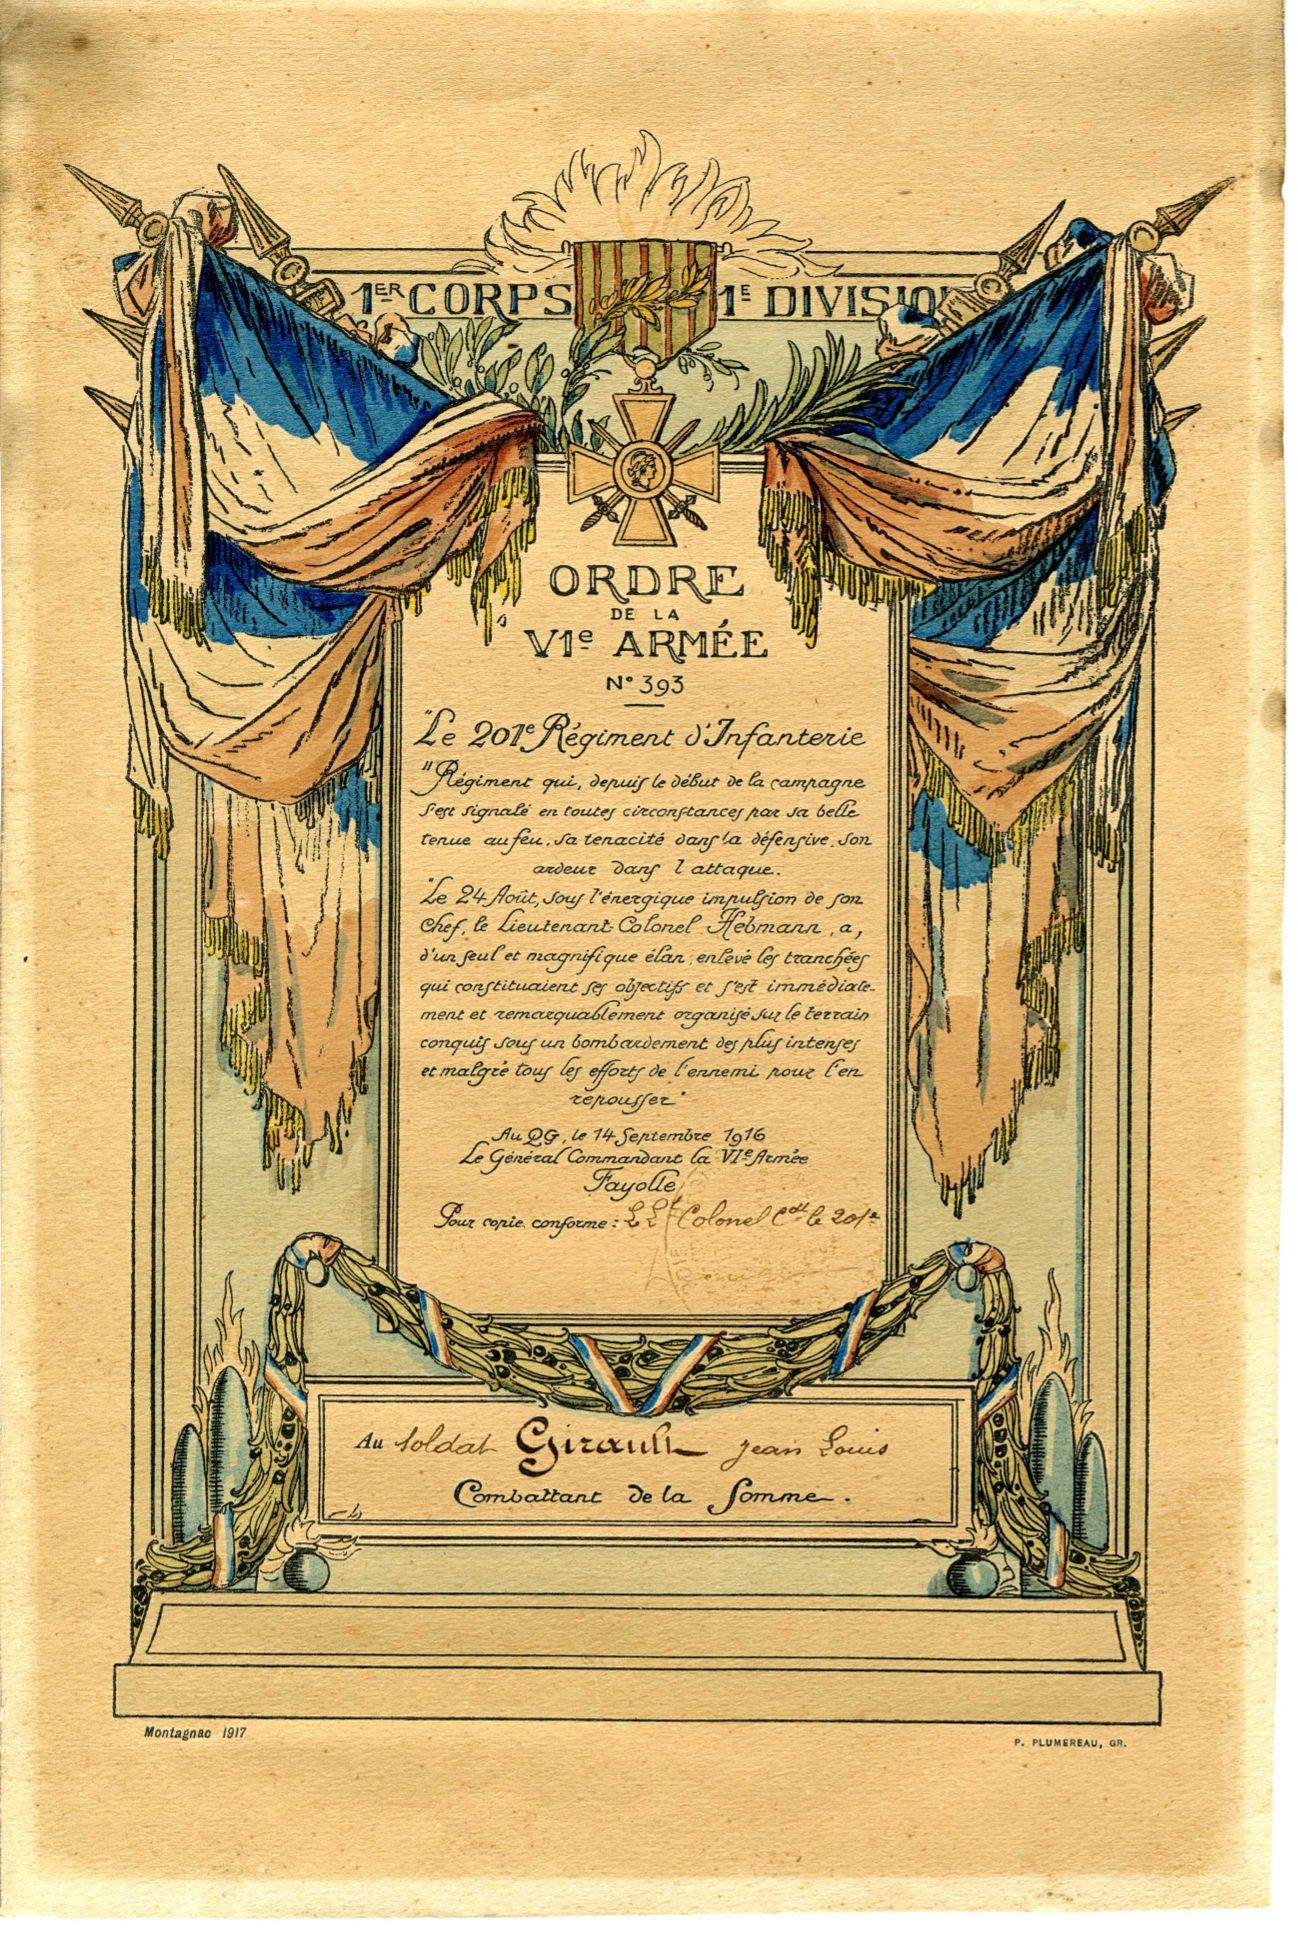 1ER CORPS 1E DIVISION
ORDRE
DE LA
VIe ARMÉE
No 393
"Le 201e Régiment d'Infanterie
"Régiment qui, depuis le début de la campagne
s'est signalé en toutes circonstances par sa belle
tenue au feu, sa tenacité dans la défensive, son
ardeur dans l'attaque.
"Le 24 Août, sous l'énergique impulsion de son
Chef, le Lieutenant-Colonel Hebmann, a,
d'un seul et magnifique élan, enlevé les tranchées
qui constituaient ses objectifs et s'est immédiate-
ment et remarquablement organisé sur le terrain
conquis sous un bombardement des plus intenses
et malgré tous les efforts de l'ennemi pour l'en
repousser"
Au QG, le 14 Septembre 1916
Le Général Commandant la VIe Armée
Fayolle
Pour copie conforme: Le Lt Colonel Cdt le 201e
Au soldat Girault Jean Louis
Combattant de la Somme.
Montagnac 1917
P. PLUMEREAU, GR.